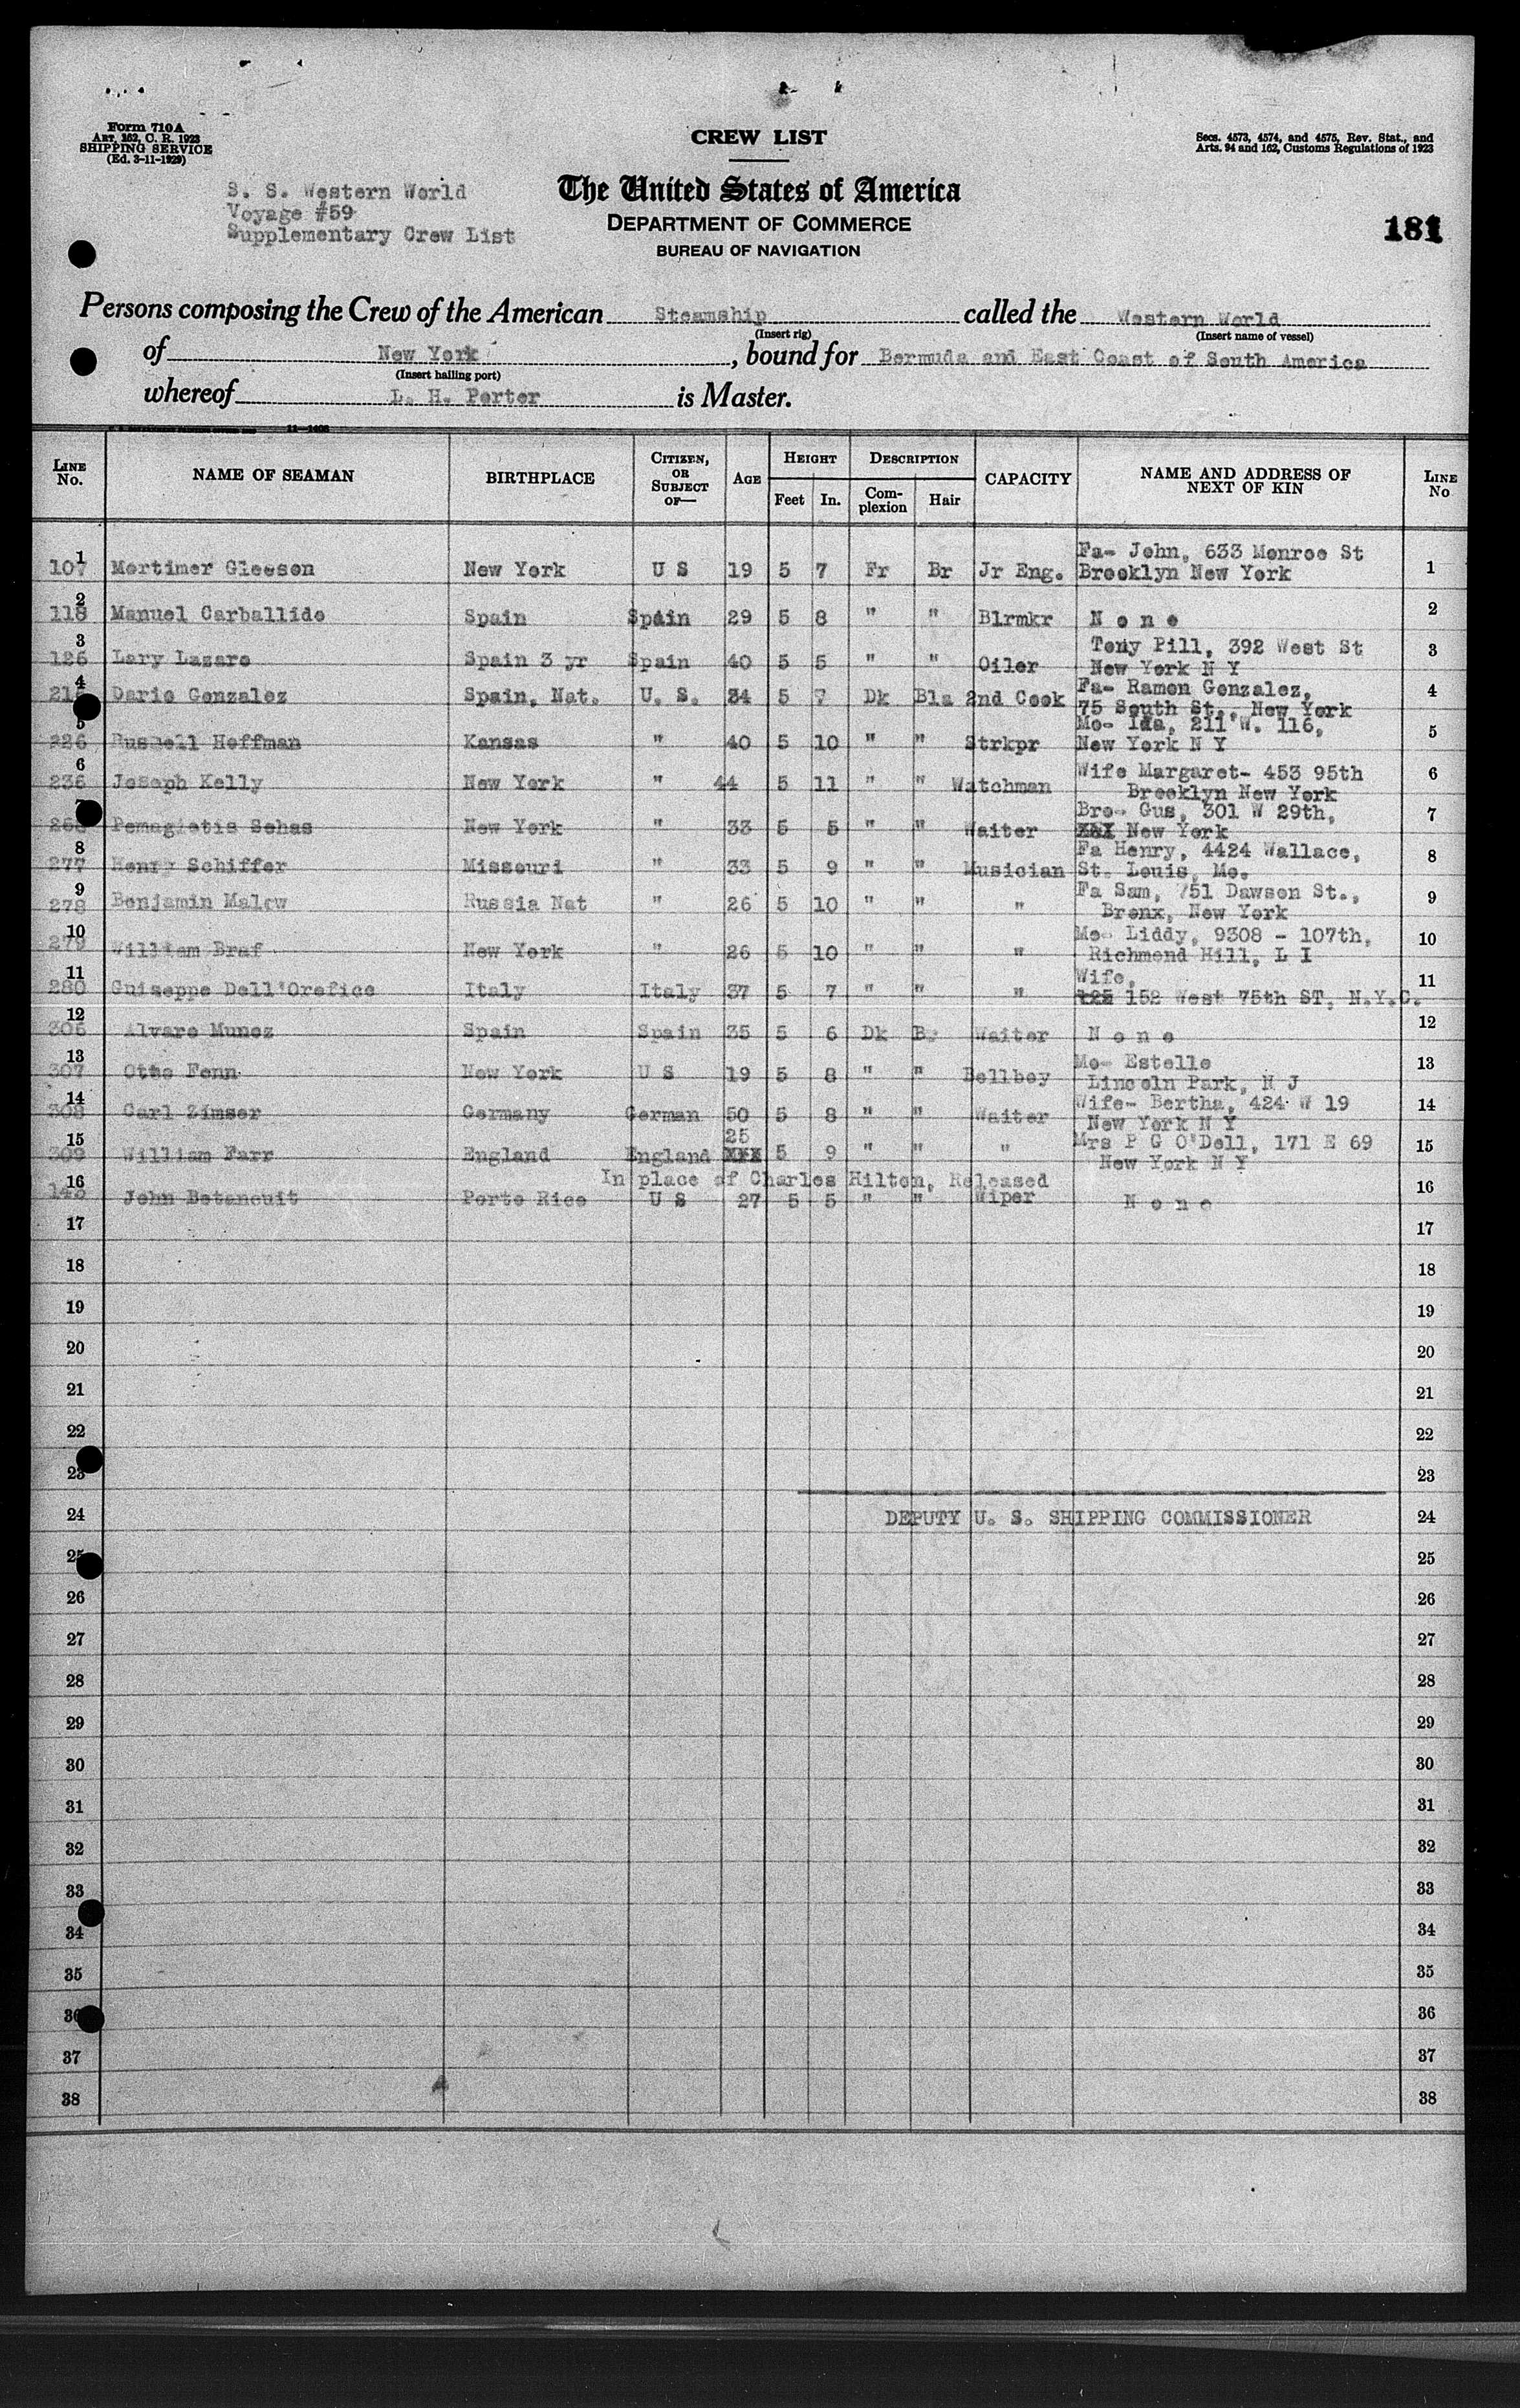 Form 710A
ART. 162, C. R. 1923
SHIPPING SERVICE
(Ed. 3-11-1929)
CREW LIST
Secs. 4573, 4574, and 4575, Rev. Stat., and
Arts. 94 and 162, Customs Regulations of 1923
S. S. Western World
Voyage #59
Supplementary Crew List
The United States of America
DEPARTMENT OF COMMERCE
BUREAU OF NAVIGATION
181
Persons composing the Crew of the American Steamship called the Western World
(Insert rig) (Insert name of vessel)
of New York, bound for Bermuda and East Coast of South America
(Insert hailing port)
whereof L. H. Porter is Master.
LINE No. NAME OF SEAMAN BIRTHPLACE CITIZEN, OR SUBJECT OF— AGE HEIGHT Feet In. DESCRIPTION Complexion Hair CAPACITY NAME AND ADDRESS OF NEXT OF KIN LINE No
1 107 Mortimer Gleeson New York U S 19 5 7 Fr Br Jr Eng. Fa- John, 633 Monroe St 1
Brooklyn New York
2 118 Manuel Carballido Spain Spain 29 5 8 " " Blrmkr None 2
3 126 Lary Lazaro Spain 3 yr Spain 40 5 5 " " Oiler Tony Pill, 392 West St 3
New York N Y
4 Dario Gonzalez Spain, Nat. U. S. 34 5 7 Dk Bla 2nd Cook Fa- Ramon Gonzalez, 4
75 South St., New York
5 226 Russell Hoffman Kansas " 40 5 10 " " Strkpr Mo- Ida, 211 W. 116, 5
New York N Y
6 236 Joseph Kelly New York " 44 5 11 " " Watchman Wife Margaret- 453 95th 6
Brooklyn New York
7 Sehas New York " 33 5 5 " " Waiter Bro- Gus, 301 W 29th, 7
New York
8 277 Henry Schiffer Missouri " 33 5 9 " " Musician Fa Henry, 4424 Wallace, 8
St. Louis, Mo.
9 278 Benjamin Malow Russia Nat " 26 5 10 " " " Fa Sam, 751 Dawson St., 9
Bronx, New York
10 279 William Braf New York " 26 5 10 " " " Mo- Liddy, 9308 - 107th, 10
Richmond Hill, L I
11 280 Guiseppe Dell'Orefice Italy Italy 37 5 7 " " " Wife, 11
125 152 West 75th ST, N.Y.C.
12 306 Alvaro Munoz Spain Spain 35 5 6 Dk Br Waiter None 12
13 307 Otto Fenn New York U S 19 5 8 " " Bellboy Mo- Estelle 13
Lincoln Park, N J
14 308 Carl Zimser Germany German 50 5 8 " " Waiter Wife- Bertha, 424 W 19 14
New York N Y
15 309 William Farr England England 25 XXX 5 9 " " " Mrs P G O'Dell, 171 E 69 15
New York N Y
In place of Charles Hilton, Released
16 143 John Betancuit Porto Rico U S 27 5 5 " " Wiper None 16
17 17
18 18
19 19
20 20
21 21
22 22
23 23
24 DEPUTY U. S. SHIPPING COMMISSIONER 24
25 25
26 26
27 27
28 28
29 29
30 30
31 31
32 32
33 33
34 34
35 35
36 36
37 37
38 38